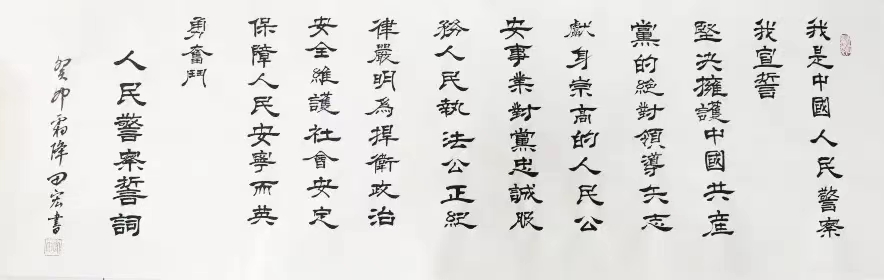 我是中國人民警察
我宣誓
堅決擁護中國共産
黨的絕對領導矢志
獻身崇高的人民公
安事業對黨忠誠服
務人民執法公正紀
律嚴明為捍衛政治
安全維護社會安定
保障人民安寧而英
勇奮鬥
人民警察誓詞
癸卯霜降田宏書